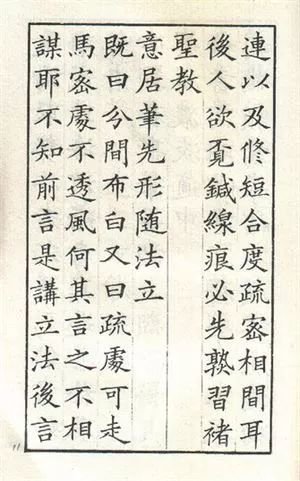 連以及修短合度疏密相間耳
後人欲覔鍼線痕必先熟習褚
聖教
意居筆先形随法立
既曰分間布白又曰疏處可走
馬密處不透風何其言之不相
謀耶不知前言是講立法後言
11